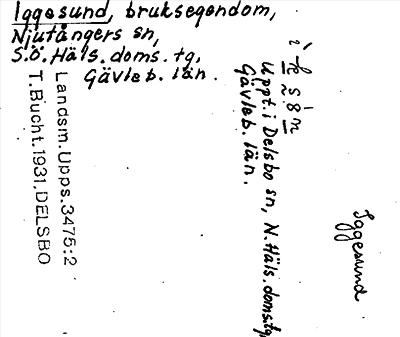 Iggesund, bruksegendom,
Njutångers sn,
S.Ö. Häls. doms. tg,
Gävleb. län.
Landsm. Upps. 3475:2
T. Bucht. 1931, DELSBO
Uppt. i Delsbo sn, N. Häls. doms.tg,
Gävleb. län.
Iggesund